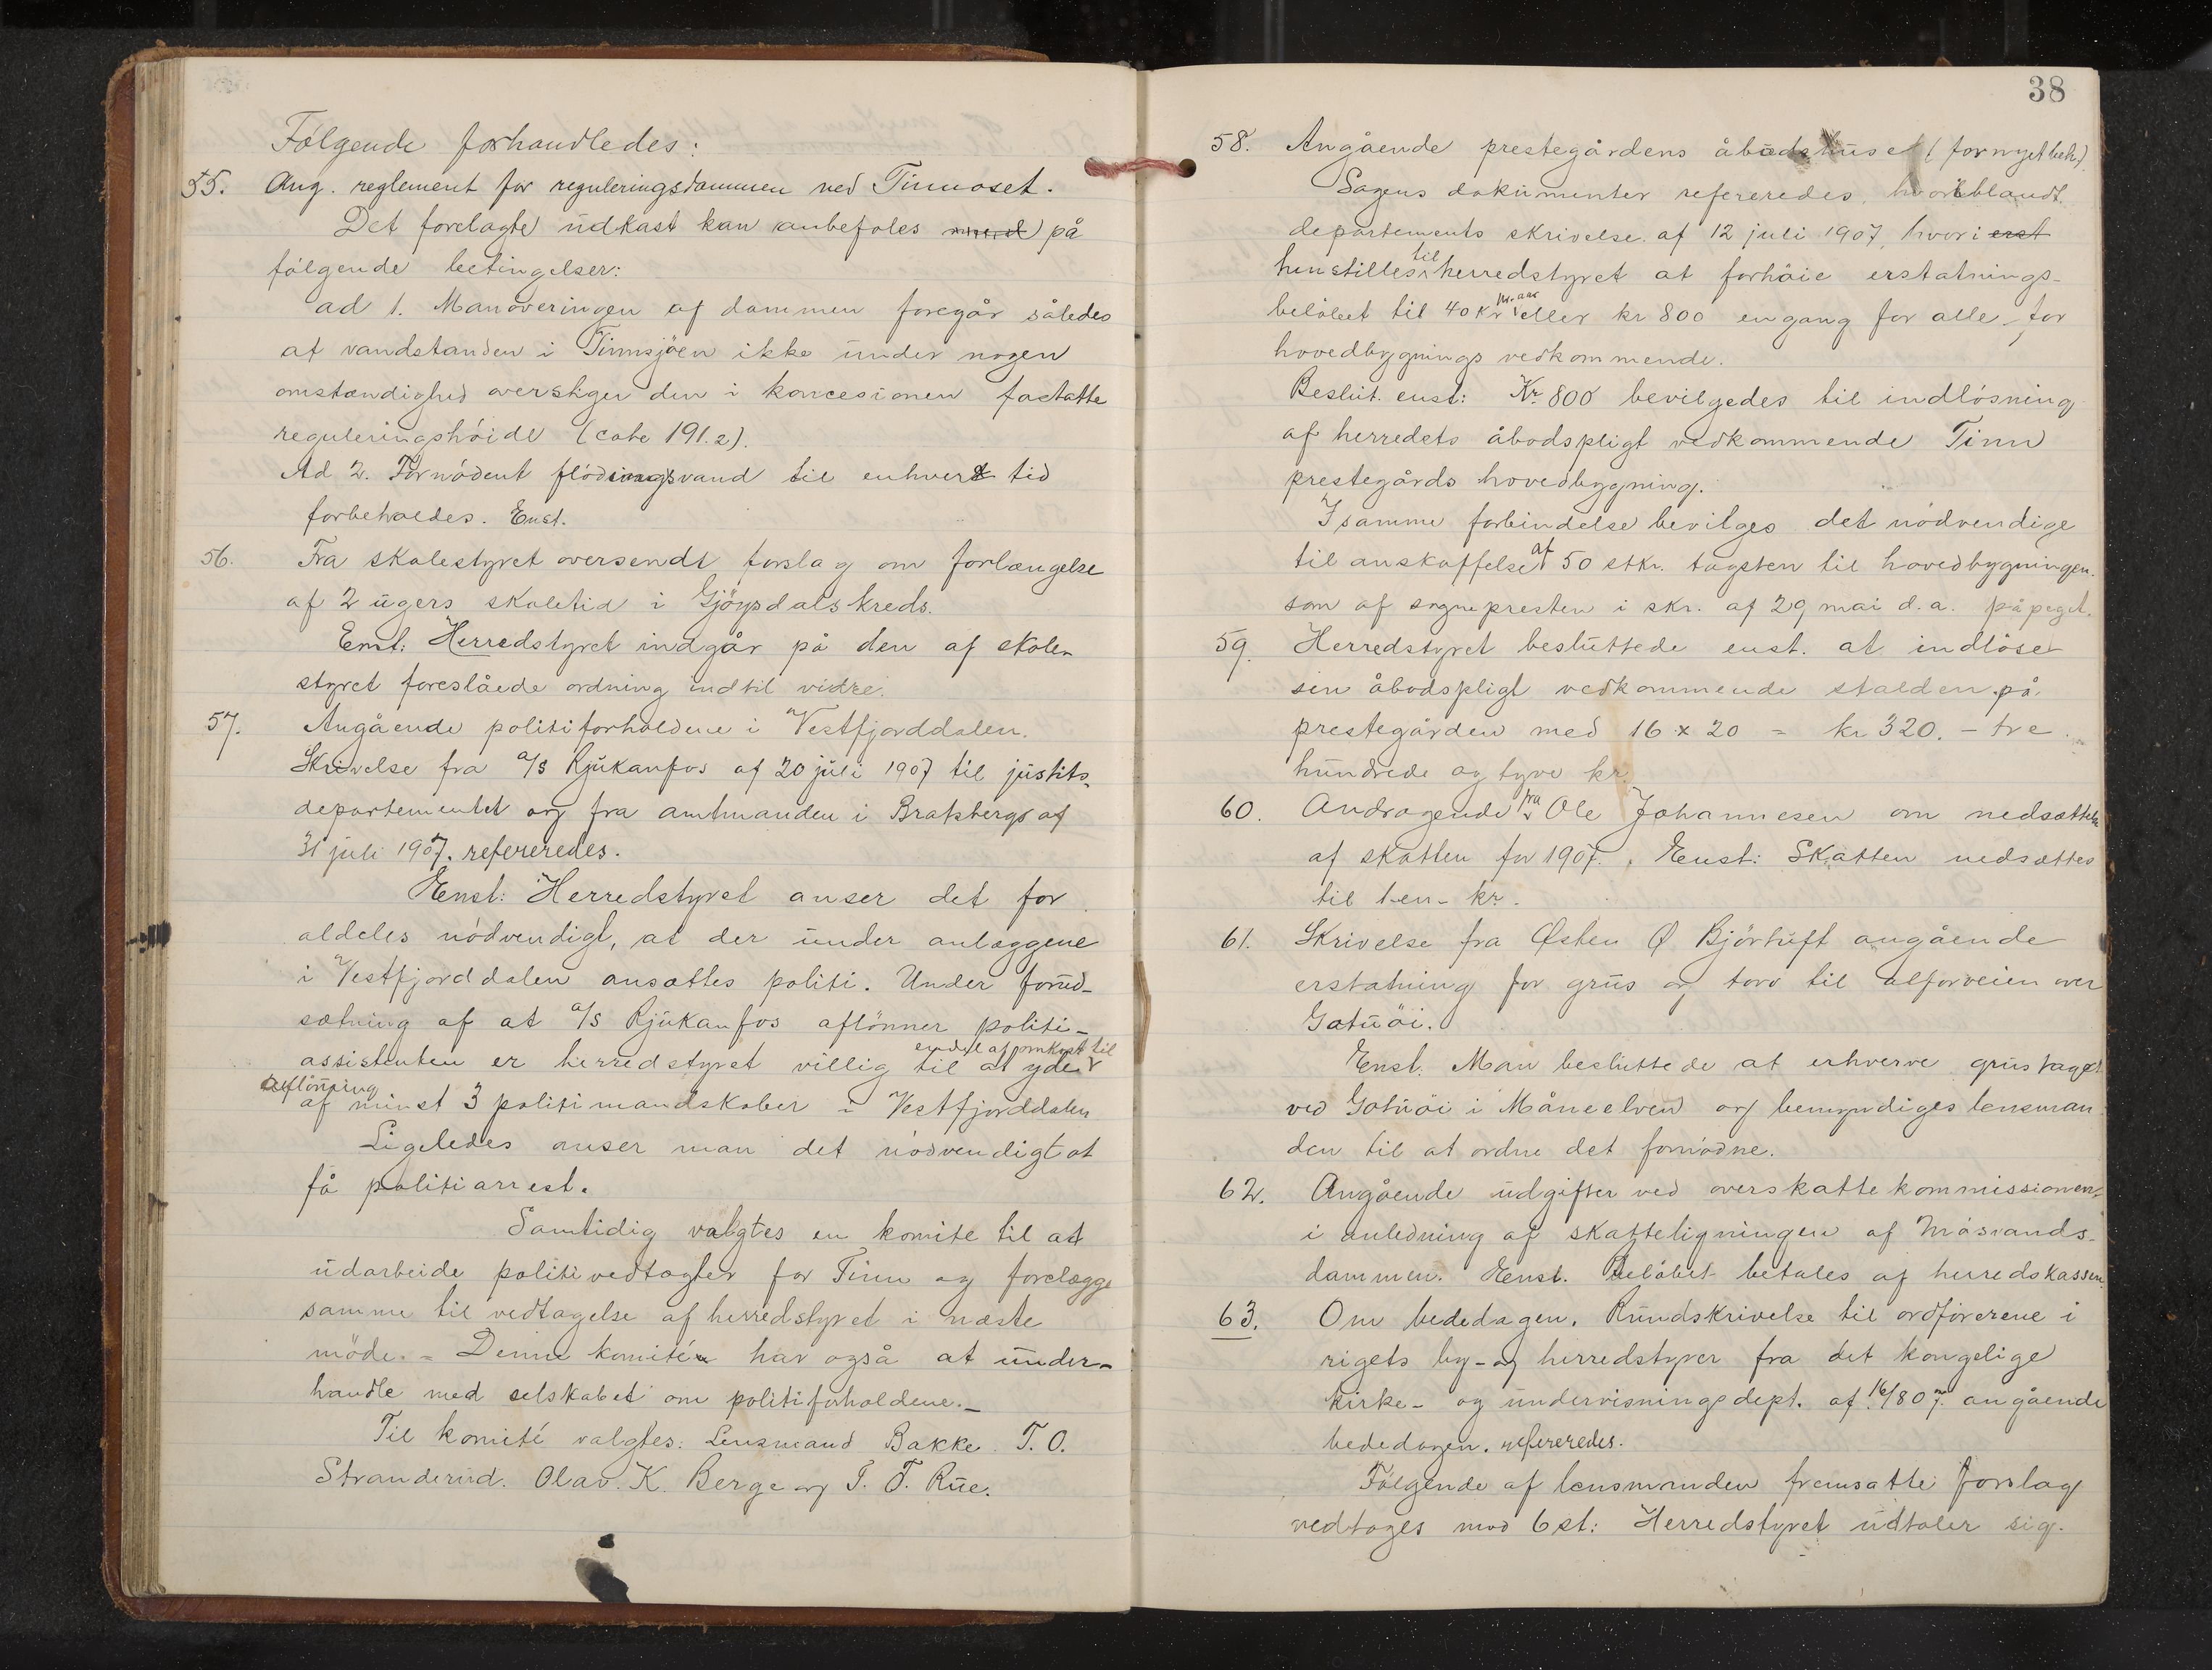 Følgende forhandledes:
55. Ang. reglement for reguleringsdammen ved Tinnoset.
Det forelagte udkast kan anbefales på
følgende betingelser:
ad 1. Manøveringen af dammen foregår således
at vandstanden i Tinnsjøen ikke under nogen
omstændighed overstiger den i koncesionen fastatte
reguleringshøide (cote 191.2).
Ad 2. Fornødent flødningsvand til enhver tid
forbeholdes. Enst.
56. Fra skolestyret oversendt forslag om forlængelse
af 2 ugers skoletid i Gjøysdals kreds.
Enst: Herredstyret indgår på den af skole-
styret foreslåede ordning indtil vidre.
57. Angående politiforholdene i Vestfjorddalen.
Skrivelse fra a/s Rjukanfos af 20 juli 1907 til justits-
departementet og fra amtmanden i Bratsbergs af
31 juli 1907. refereredes.
Enst: Herredstyret anser det for
aldeles nødvendigt, at der under anlæggene
i Vestfjorddalen ansættes politi. Under forud-
sætning af at a/s Rjukanfos aflønner politi-
assistenten er herredstyret villig til at yde endel af omkost til
aflønning
af minst 3 politimandskaber i Vestfjorddalen
Ligeledes anser man det nødvendigt at
få politiarrest.
Samtidig valgtes en komite til at
udarbeide politivedtægter for Tinn og forelægge
samme til vedtagelse af herredstyret i næste
møde. - Denne komité har også at under-
handle med selskabet om politiforholdene. -
Til komité valgtes: Lensmand Bakke. T. O.
Stranderud. Olav. K. Berge og T. T. Rue.
38
58. Angående prestegårdens åbodshuse (fornyet beh.)
Sagens dokumenter refereredes, hvoriblandt
departements skrivelse af 12 juli 1907, hvori erst
henstilles til herredstyret at forhøie erstatnings-
beløbet til 40 kr pr. aar eller kr 800 engang for alle, for
hovedbygnings vedkommende.
Beslut. enst: Kr. 800 bevilgedes til indløsning
af herredets åbodspligt vedkommende Tinn
prestegårds hovedbygning.
I samme forbindelse bevilges det nødvendige
til anskaffelse af 50 stkr. tagsten til hovedbygningen.
som af sognepresten i skr. af 29 mai d.a. påpeget.
59. Herredstyret besluttede enst. at indløse
sin åbodspligt vedkommende stalden på
prestegården med 16 x 20 = kr 320. - tre
hundrede og tyve kr.
60. Andragende fra Ole Johannesen om nedsættelse
af skatten for 1907. Enst: Skatten nedsættes
til ten- kr.
61. Skrivelse fra Østen Ø Bjørtuft angående
erstatning for grus og torv til alfarveien over
Gatuøi.
Enst. Man besluttede at erhverve grustaget
ved Gatuøi i Måneelven og bemyndiges lensman
den til at ordne det fornødne.
62. Angående udgifter ved overskattekommissionen
i anledning af skatteligningen af Møsvands-
dammen. Enst. Beløbet betales af herredskassen
63. Om bededagen. Rundskrivelse til ordførerene i
rigets by- og herredstyrer fra det kongelige
kirke- og undervisningsdept. af 16/8 07. angående
bededagen. refereredes.
Følgende af lensmanden fremsatte forslag
vedtoges mod 6 st: Herredstyret udtaler sig.